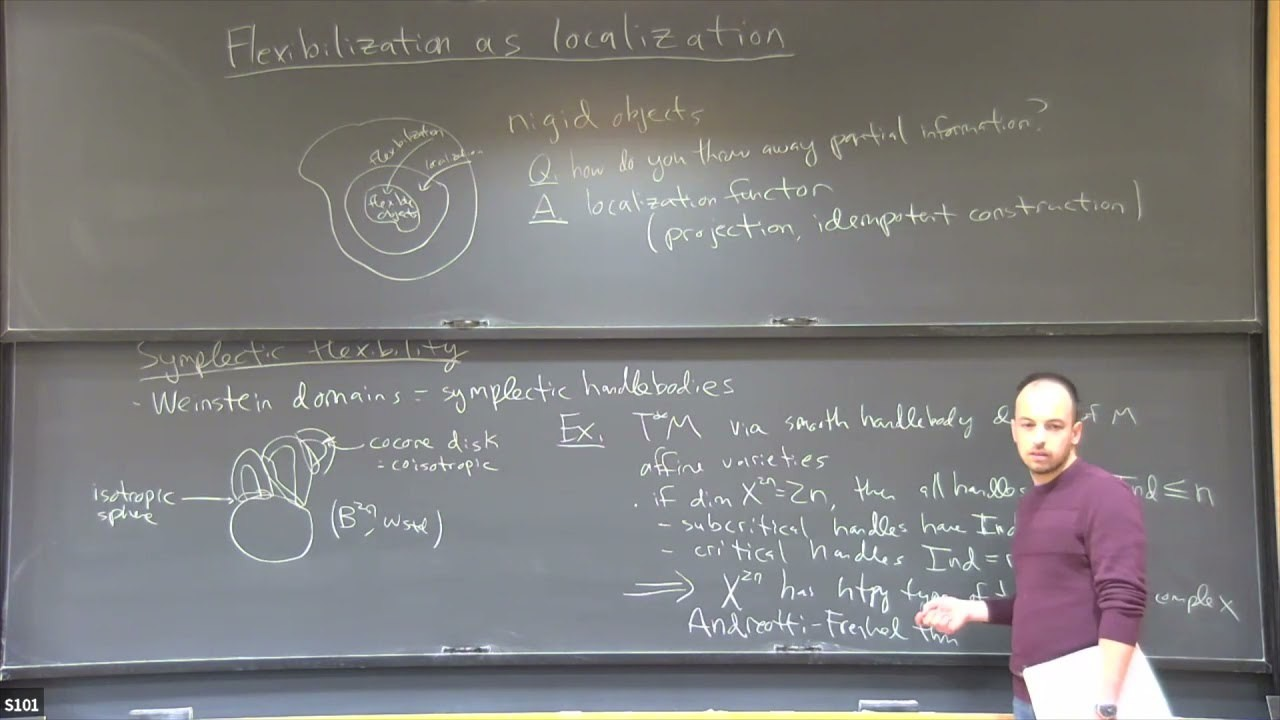 Flexibilization as localization
rigid objects
flexibilization
localization
flexible
objects
Q. how do you throw away partial information?
A. localization functor
(projection, idempotent construction)
Symplectic flexibility
- Weinstein domains = symplectic handlebodies
cocore disk
= coisotropic
isotropic
sphere
(B²ⁿ, ω_std)
Ex. T*M via smooth handlebody of M
affine varieties
. if dim X²ⁿ = 2n, then all handles Ind ≤ n
- subcritical handles have Ind
- critical handles Ind =
⟹ X²ⁿ has htpy type of complex
Andreotti-Frenkel thm
S101